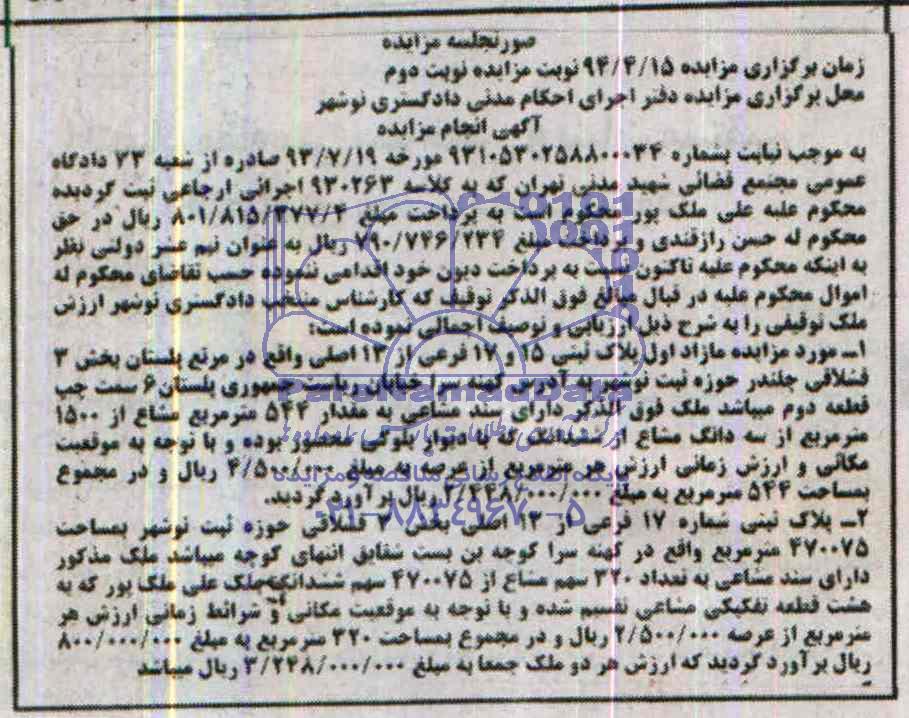 صورتجلسه مزایده
زمان برگزاری مزایده ۹۴/۴/۱۵ نوبت مزایده نوبت دوم
محل برگزاری مزایده دفتر اجرای احکام مدنی دادگستری نوشهر
آگهی انجام مزایده
به موجب نیابت بشماره ۹۳۱۰۵۳۰۲۵۸۸۰۰۰۳۴ مورخه ۹۳/۷/۱۹ صادره از شعبه ۷۳ دادگاه
عمومی مجتمع قضائی شهید مدنی تهران که به کلاسه ۹۳۰۲۶۳ اجرائی ارجاعی ثبت گردیده
محکوم علیه علی ملک پور محکوم است به پرداخت مبلغ ۸۰۱/۸۱۵/۳۷۷/۴ ریال در حق
محکوم له حسن رازقندی و پرداخت مبلغ ۷۹۰/۷۴۶/۲۳۴ ریال به عنوان نیم عشر دولتی نظر
به اینکه محکوم علیه تاکنون نسبت به پرداخت دیون خود اقدامی ننموده حسب تقاضای محکوم له
اموال محکوم علیه در قبال مبالغ فوق الذکر توقیف که کارشناس منتخب دادگستری نوشهر ارزش
ملک توقیفی را به شرح ذیل ارزیابی و توصیف اجمالی نموده است:
۱ـ مورد مزایده مازاد اول پلاک ثبتی ۱۵ و ۱۷ فرعی از ۱۳ اصلی واقع در مرتع پلستان بخش ۳
قشلاقی چلندر حوزه ثبت نوشهر به آدرس کهنه سرا خیابان ریاست جمهوری پلستان ۶ سمت چپ
قطعه دوم میباشد ملک فوق الذکر دارای سند مشاعی به مقدار ۵۴۴ مترمربع مشاع از ۱۵۰۰
مترمربع از سه دانگ مشاع از ششدانگ که با دیوار بلوکی محصور بوده و با توجه به موقعیت
مکانی و ارزش زمانی ارزش هر مترمربع از عرصه به مبلغ ۴/۵۰۰/۰۰۰ ریال و در مجموع
بمساحت ۵۴۴ مترمربع به مبلغ ۲/۴۴۸/۰۰۰/۰۰۰ ریال برآورد گردید.
۲ـ پلاک ثبتی شماره ۱۷ فرعی از ۱۳ اصلی بخش ۳ قشلاقی حوزه ثبت نوشهر بمساحت
۴۷۰۰۷۵ مترمربع واقع در کهنه سرا کوچه بن بست شقایق انتهای کوچه میباشد ملک مذکور
دارای سند مشاعی به تعداد ۳۲۰ سهم مشاع از ۴۷۰۰۷۵ سهم ششدانگ ملک علی ملک پور که به
هشت قطعه تفکیکی مشاعی تقسیم شده و با توجه به موقعیت مکانی و شرائط زمانی ارزش هر
مترمربع از عرصه ۲/۵۰۰/۰۰۰ ریال و در مجموع بمساحت ۳۲۰ مترمربع به مبلغ ۸۰۰/۰۰۰/۰۰۰
ریال برآورد گردید که ارزش هر دو ملک جمعا به مبلغ ۳/۲۴۸/۰۰۰/۰۰۰ ریال میباشد
ParsNamadData
پایگاه اطلاع رسانی مناقصه و مزایده
۰۲۱-۸۸۳۴۹۶۷۰-۵